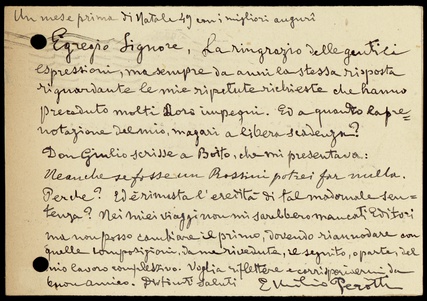 Un mese prima di Natale 49 con i migliori auguri
Egregio Signore, La ringrazio delle gentili
espressioni, ma sempre da anni la stessa risposta
riguardante le mie ripetute richieste che hanno
preceduto molti Loro impegni. Ed a quando la pre-
notazione del mio, magari a libera scadenza?
Don Giulio scrisse a Boito, che mi presentava:
Neanche se fosse un Rossini potrei far nulla.
Perche? Ed è rimasta l'eredità di tal madornale sen-
tenza? Nei miei viaggi non mi sarebbero mancati Editori
ma non posso cambiare il primo, dovendo riannodare con
quelle composizioni, da me rivedute, il seguito, o parte, del
mio lavoro complessivo. Voglia riflettere e corrispondermi da
buon amico. Distinti Saluti Emilio Perotti